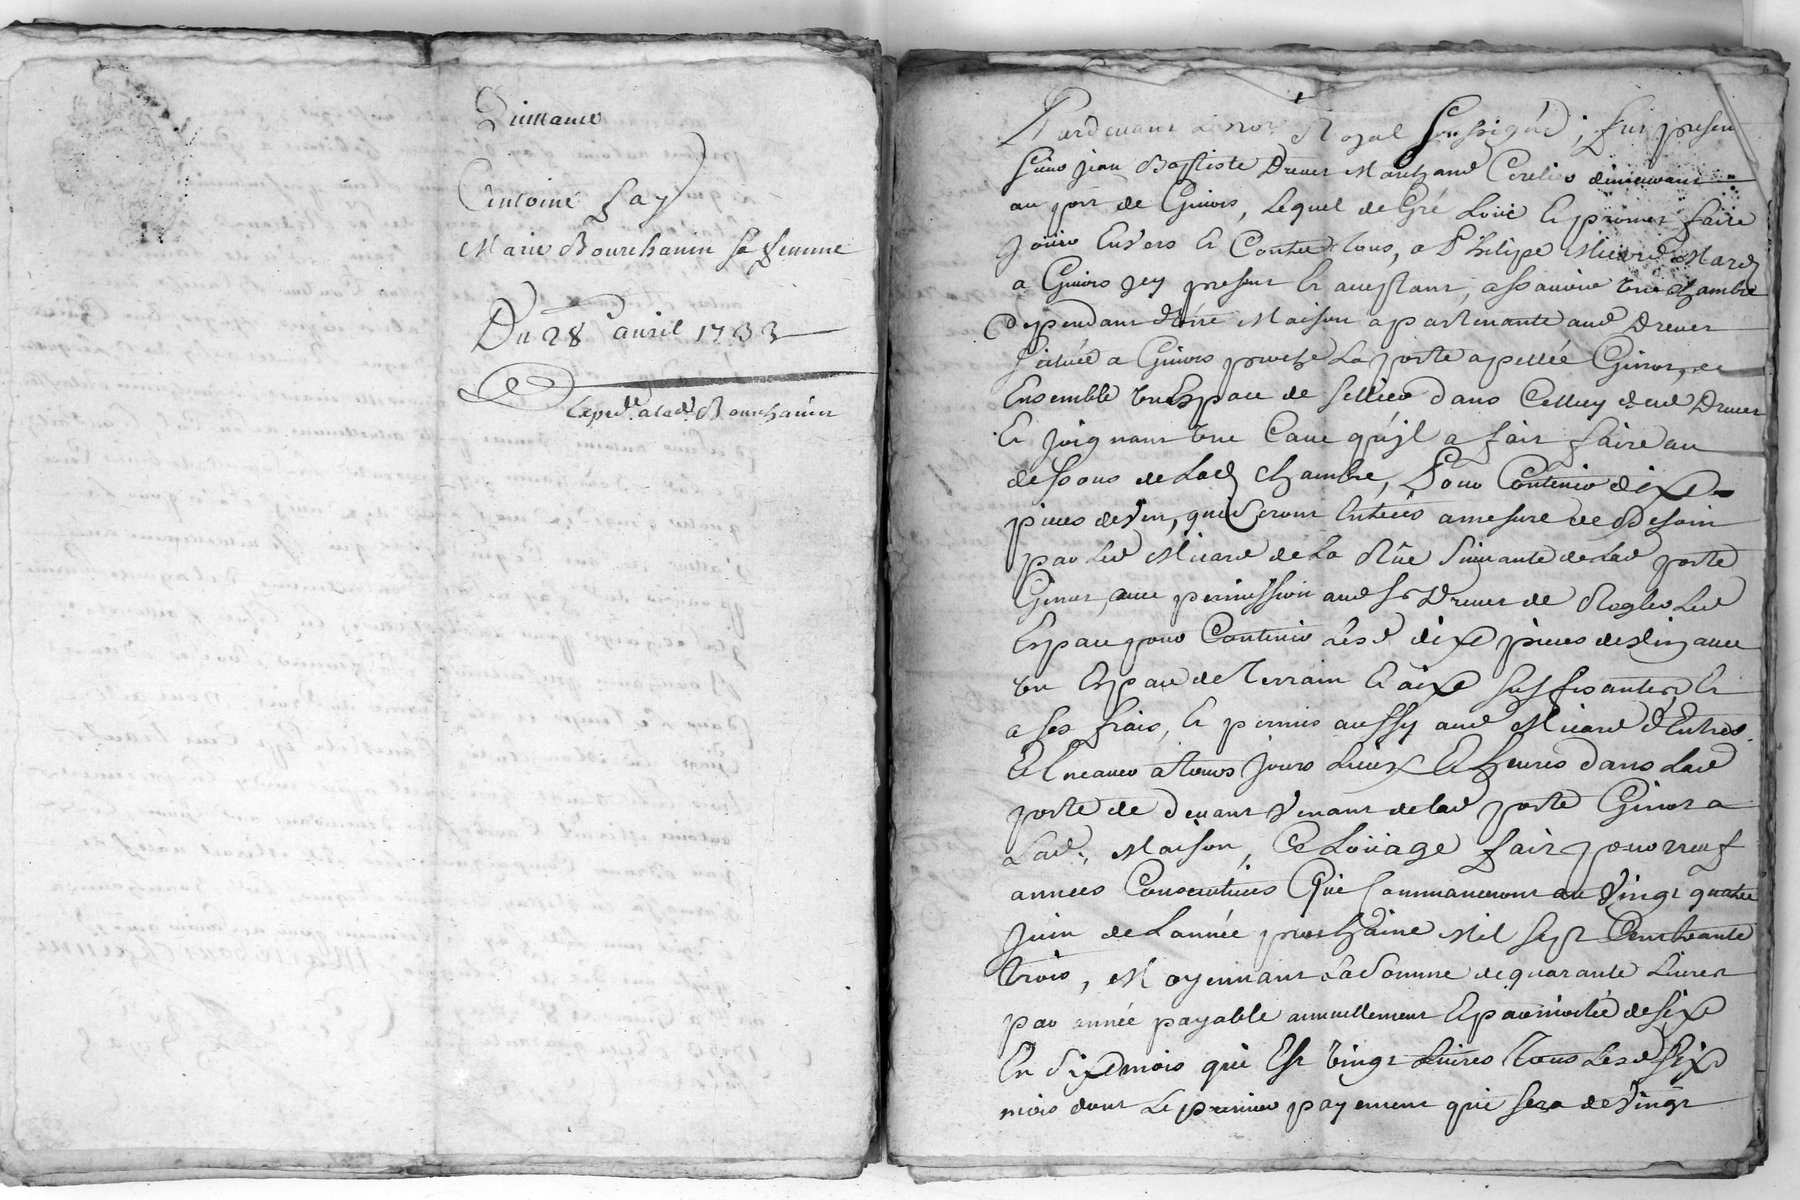 Quittance
Antoine fay
Marie Bourchanin sa femme
Du 28e avril 1733
expedé. a lad. Bourchanin
Pardevant le nore Royal soussigné, fut present
sieur jean Baptiste Drevet Marchand demeurant
au port de Givors, lequel de Gré Loüe et promet faire
joüir Envers et Contre tous, a Philipe Micard March
a Givors jcy present et aceptant, assavoir une chambre
dependant d'une Maison apartenante aud Drevet
scituée a Givors proche La porte apellée Ginot, et
Ensemble un Espace de sellier dans Celluy dud Drevet
Et joignant une Cave qu'jl a fait faire au
dessous de Lad chambre, Pour Contenir dixe
pieces de vin, qui seront Entrées a mesure de Besoin
par Led Micard de La Rüe suivante de Lad porte
Ginot, avec permission aud sr Drevet de Regler Led
Espace pour Contenir Lesd dixe pieces de vin avec
un Espace de Terrain et aixe suffisantes Et
a ses frais, et permis aussy aud Micard d'Entrer
a tous jours Lieux Et heures dans Lad
porte de devant venant de lad porte Ginot a
Lad. Maison, Ce Loüage fait pour neuf
années Consecutives Qui Commanceront au vingt quatre
juin de L'année prochaine Mil sept Cent trante
trois, Moyennant La somme de quarante Livres
par année payable annuellement Et par moitié de sixe
En sixe mois qui Est vingt Livres tous Lesd sixe
mois dont Le premier payement qui sera de vingt